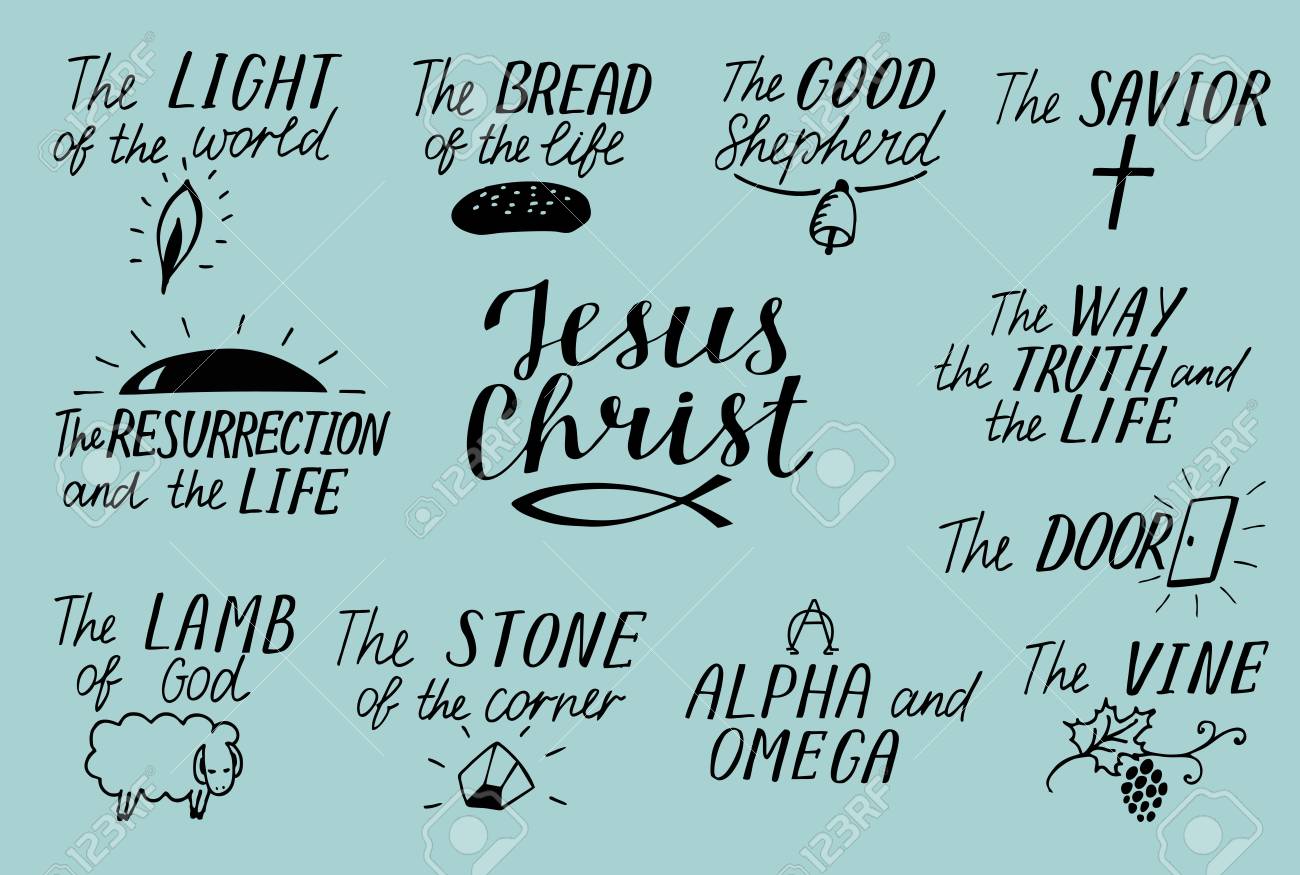 The LIGHT
of the world
The BREAD
of the life
The GOOD
Shepherd
The SAVIOR
Jesus
Christ
The WAY
the TRUTH and
the LIFE
The RESURRECTION
and the LIFE
The DOOR
The LAMB
of God
The STONE
of the corner
ΑΩ
ALPHA and
OMEGA
The VINE
123RF
123RF
123RF
123RF
123RF
123RF
123RF
123RF
123RF
123RF
123RF